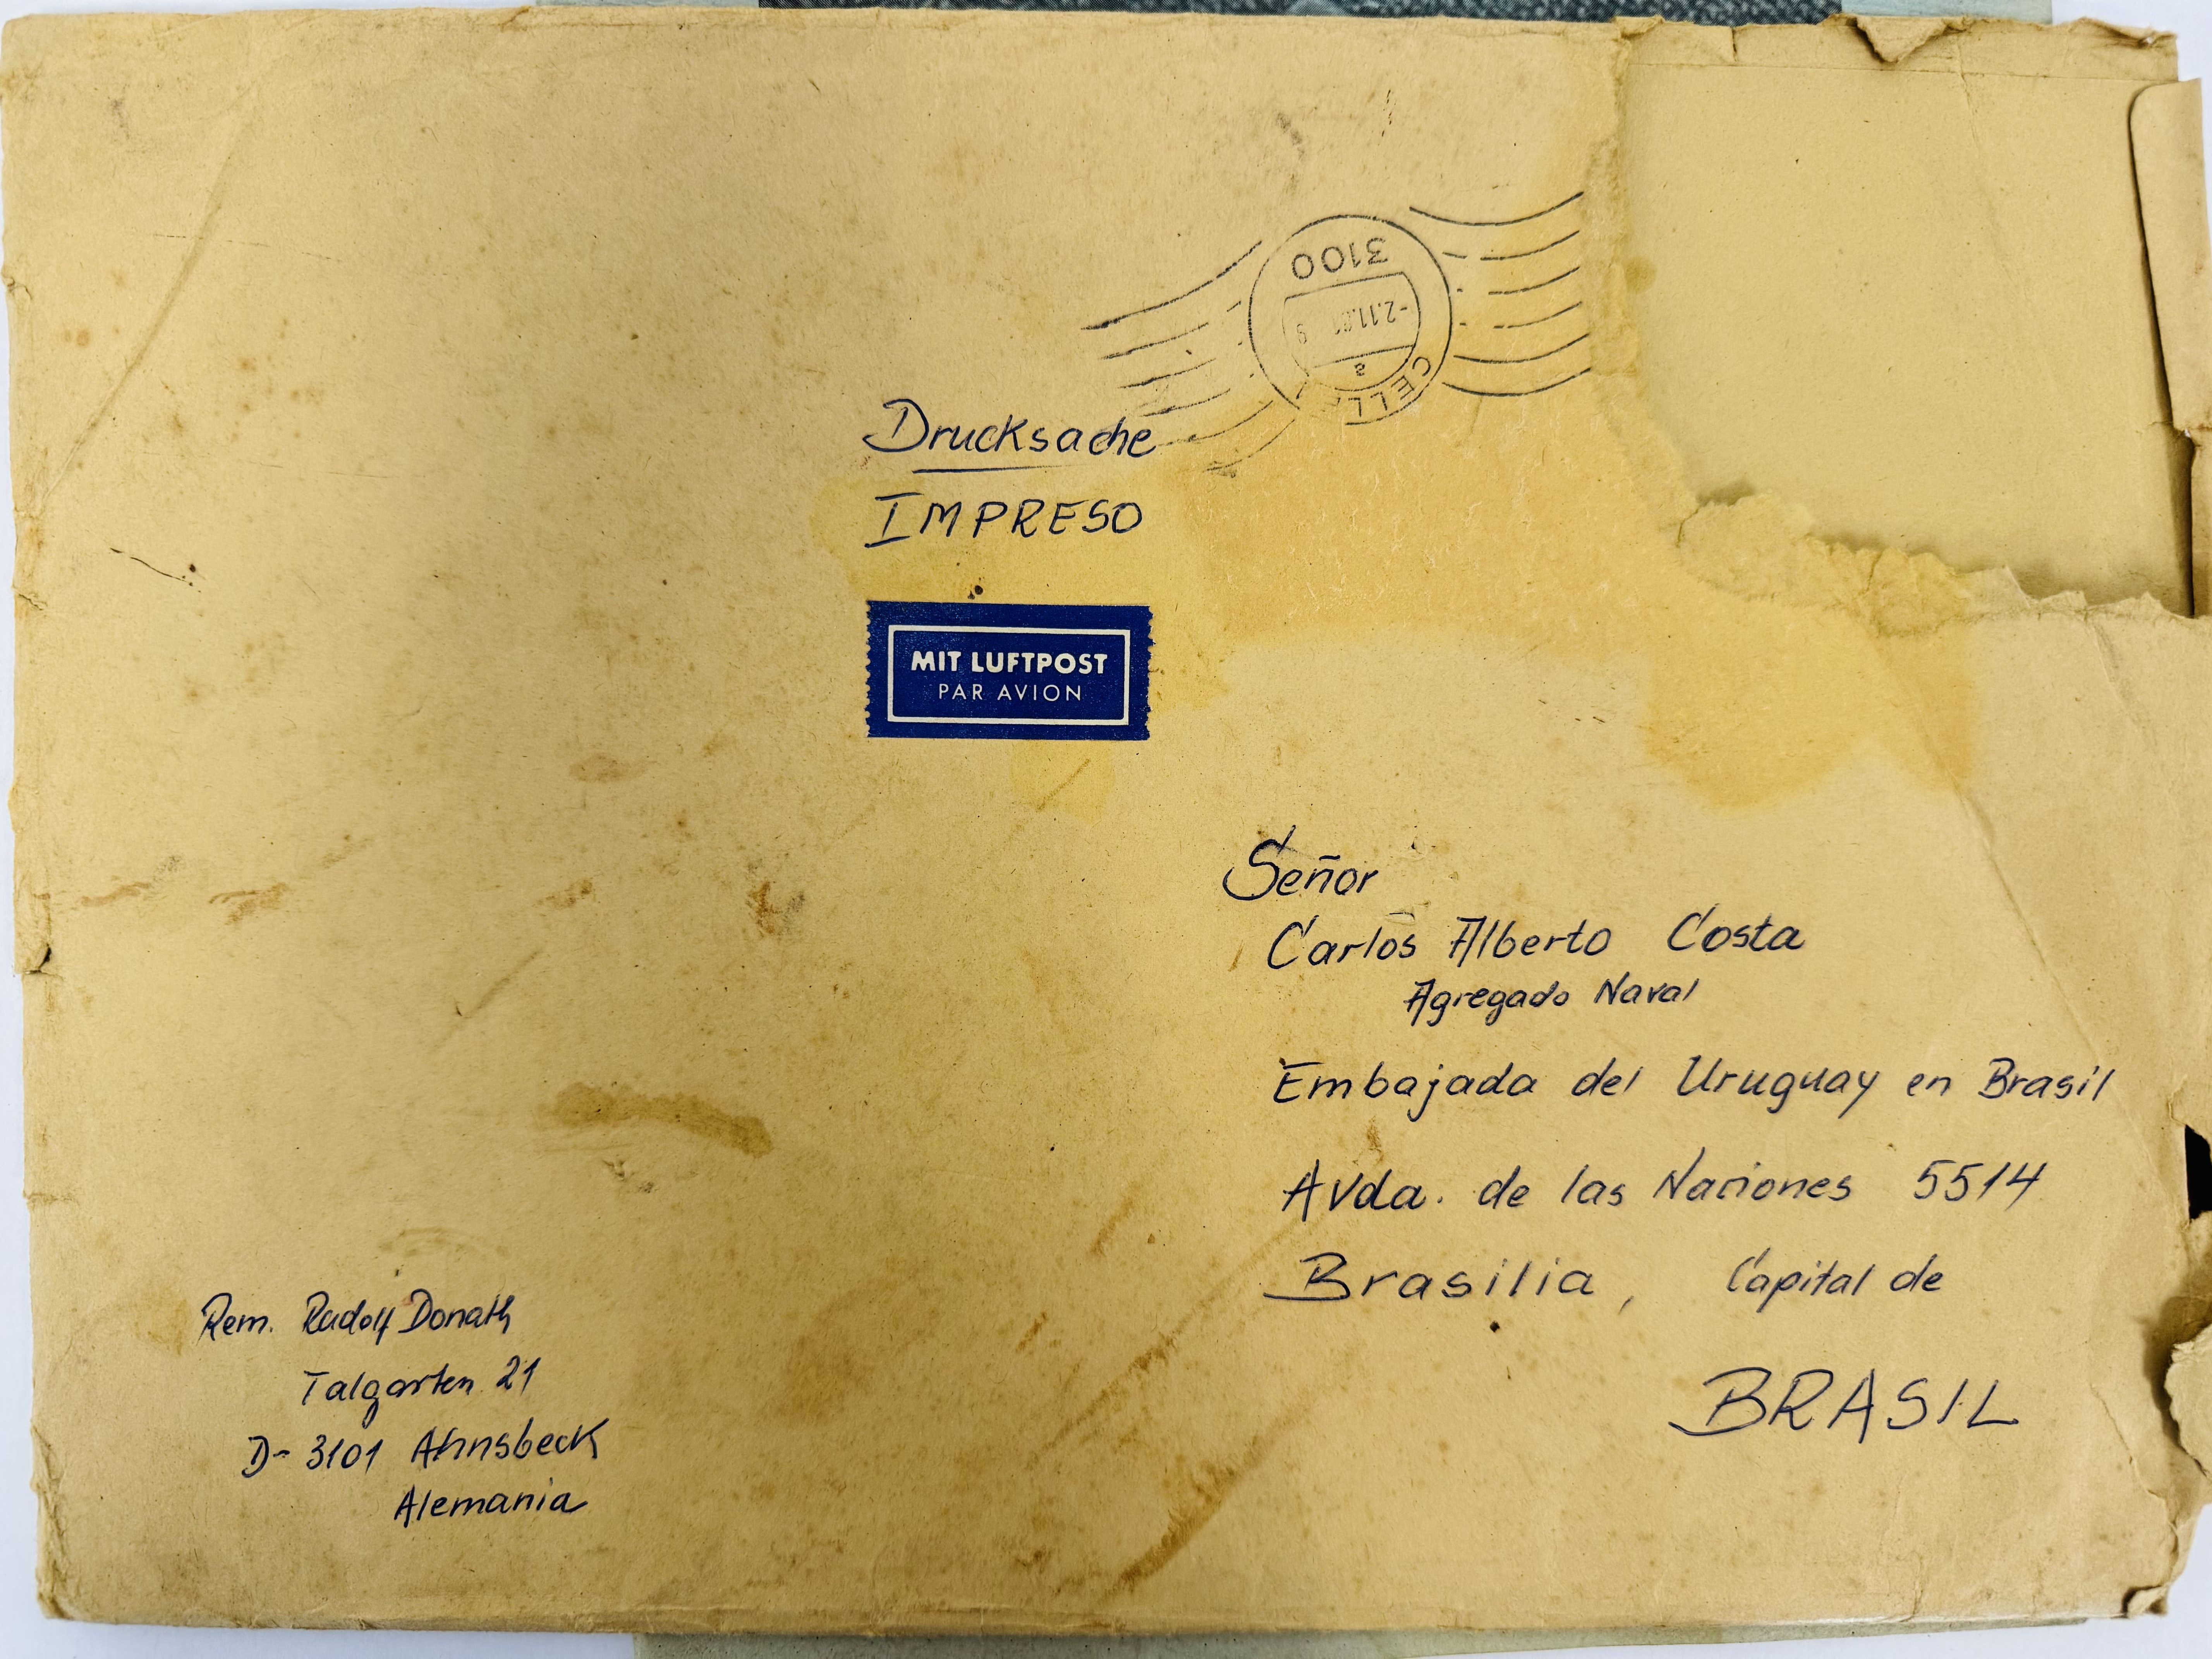 3100
-2.11. 9
a
CELL
Drucksache
IMPRESO
MIT LUFTPOST
PAR AVION
Señor
Carlos Alberto Costa
Agregado Naval
Embajada del Uruguay en Brasil
Avda. de las Naciones 5514
Brasilia, Capital de
BRASIL
Rem. Rudolf Donath
Talgarten 21
D- 3101 Ahnsbeck
Alemania